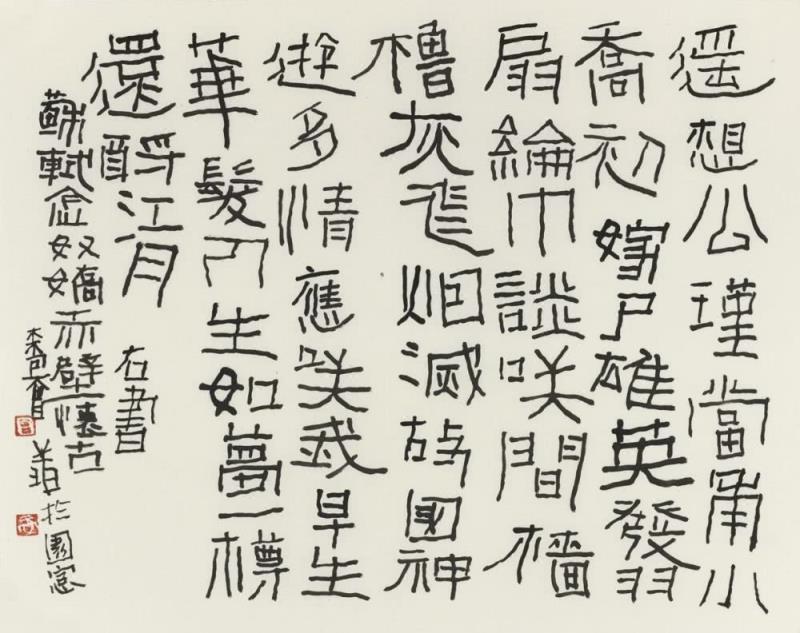 遥想公瑾當年小
喬初嫁了雄英發羽
扇綸巾談咲間檣
櫓灰飛烟滅故國神
遊多情應咲我早生
華髮人生如夢一樽
還酹江月
右書
蘇軾念奴嬌赤壁懷古
於園窓